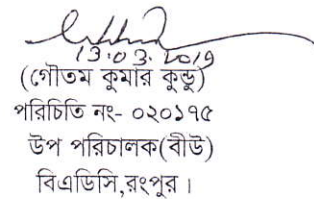 13.03.2019
(গৌতম কুমার কুন্ডু)
পরিচিতি নং- ০২০১৭৫
উপ পরিচালক(বীউ)
বিএডিসি,রংপুর।